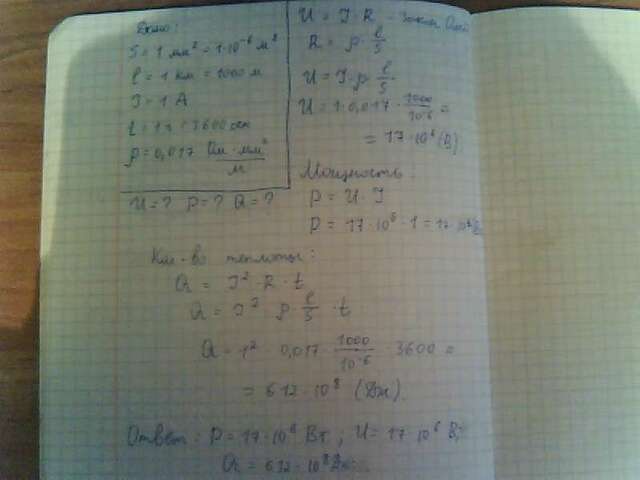 Дано:
S = 1 мм² = 1·10⁻⁶ м²
l = 1 км = 1000 м
I = 1 А
t = 1 ч = 3600 сек
ρ = 0,017 Ом·мм²/м
U = ? P = ? Q = ?
U = I·R - закон Ома
R = ρ·l/S
U = I·ρ·l/S
U = 1·0,017·1000/10⁻⁶ =
= 17·10⁶ (В)
Мощность:
P = U·I
P = 17·10⁶·1 = 17·10⁶
Кол-во теплоты:
Q = I²·R·t
Q = I² ρ·l/S·t
Q = 1²·0,017·1000/10⁻⁶·3600 =
= 612·10⁸ (Дж).
Ответ: P = 17·10⁶ Вт; U = 17·10⁶ В;
Q = 612·10⁸ Дж